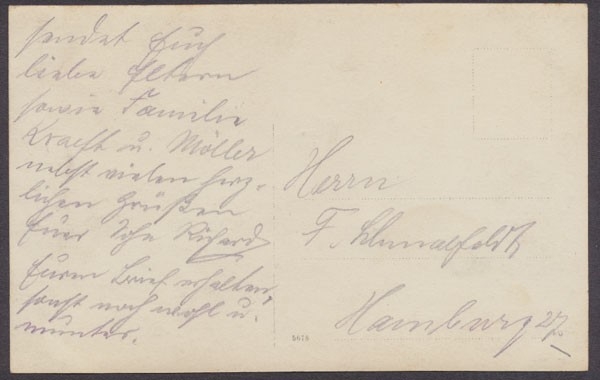 sendet Euch
liebe Eltern
sowie Familie
Kraeft u. Möller
nebst vielen herz-
lichen Grüßen
Euer Sohn Richard
Euren Brief erhalten,
sonst noch wohl u.
munter.
Herrn
F. Schmalfeldt
Hamburg 27.
5676